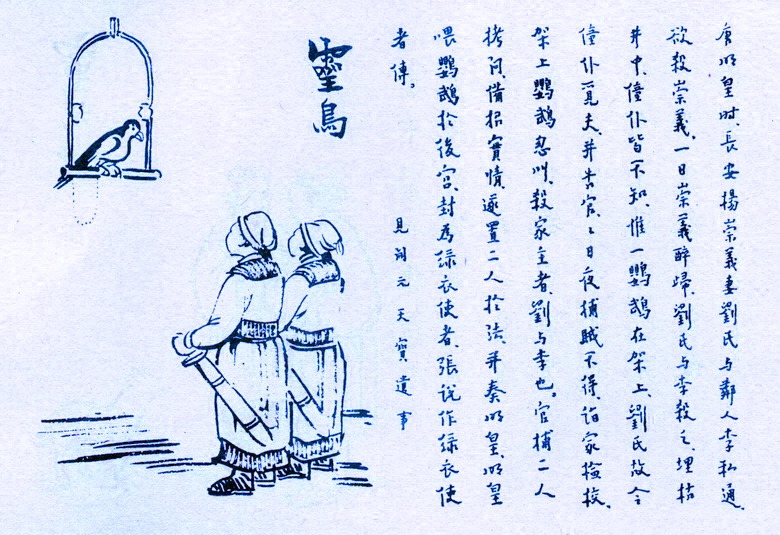 唐明皇时、長安揚崇義妻劉氏与鄰人李私通、
欲殺崇義。一日崇義醉歸、劉氏与李殺之、埋枯
井中、僮仆皆不知、惟一鹦鵡在架上、劉氏故令
僮仆觅夫、并告官。々日夜捕賊不得、詣家檢校、
架上鹦鵡忽叫、殺家主者、劉与李也。官捕二人
拷问、備招實情、遂置二人於法、并奏明皇、明皇
喂鹦鵡於後宫、封爲绿衣使者、張说作绿衣使
者傳。 見闻元天寶遺事
靈鳥